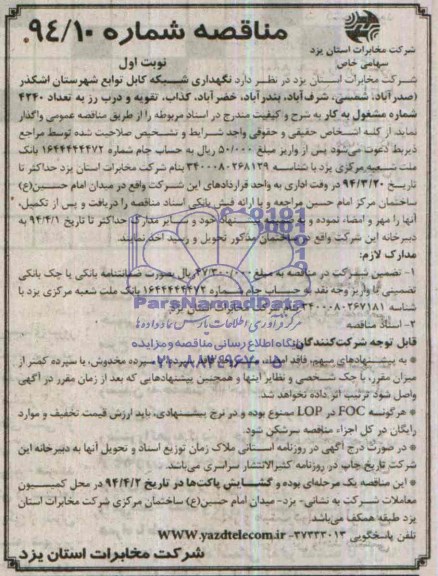 مناقصه شماره ۹۴/۱۰.
شرکت مخابرات استان یزد
سهامی خاص
نوبت اول
شرکت مخابرات استان یزد در نظر دارد نگهداری شبکه کابل توابع شهرستان اشکذر
(صدرآباد، شمسی، شرف‌آباد، بندرآباد، خضرآباد، کذاب، تقویه و درب رز به تعداد ۴۲۴۰
شماره مشغول به کار به شرح و کیفیت مندرج در اسناد مربوطه را از طریق مناقصه عمومی واگذار
نماید. از کلیه اشخاص حقیقی و حقوقی واجد شرایط و تشخیص صلاحیت شده توسط مراجع
ذیربط دعوت می‌شود پس از واریز مبلغ ۵۰/۰۰۰ ریال به حساب جام شماره ۱۶۴۴۴۴۴۴۷۲ بانک
ملت شعبه مرکزی یزد با شناسه ۳۴۰۰۰۸۰۲۶۸۱۳۹ بنام شرکت مخابرات استان یزد حداکثر تا
تاریخ ۹۴/۳/۲۰ در وقت اداری به واحد قراردادهای این شرکت واقع در میدان امام حسین(ع)
ساختمان مرکز امام حسین مراجعه و با ارائه فیش بانکی اسناد مناقصه را دریافت و پس از تکمیل،
آنها را مهر و امضاء نموده و به ضمیمه پیشنهاد خود و سایر مدارک حداکثر تا تاریخ ۹۴/۴/۱ به
دبیرخانه این شرکت واقع در ساختمان مذکور تحویل و رسید اخذ نمایند.
مدارک لازم:
۱- تضمین شرکت در مناقصه به مبلغ ریال بصورت ضمانتنامه بانکی یا چک بانکی
تضمینی یا واریز وجه نقد به حساب جام شماره ۱۶۴۴۴۴۴۴۷۲ بانک ملت شعبه مرکزی یزد با
شناسه ۳۴۰۰۰۸۰۲۶۷۱۸۱ بنام شرکت مخابرات استان یزد
۲- اسناد مناقصه
ParsNamadData
مرکز فرآوری اطلاعات پارس نماد داده‌ها
پایگاه اطلاع رسانی مناقصه و مزایده
۰۲۱-۸۸۳۴۹۶۷۰-۵
قابل توجه شرکت‌کنندگان:
● به پیشنهادهای مبهم، فاقد امضاء، سپرده مخدوش، یا سپرده کمتر از
میزان مقرر، یا چک شخصی و نظایر آنها و همچنین پیشنهادهایی که بعد از زمان مقرر در آگهی
واصل شود ترتیب اثر داده نخواهد شد.
● هرگونه FOC در LOP ممنوع بوده و در نرخ پیشنهادی، باید ارزش قیمت تخفیف و موارد
رایگان در کل اجزاء مناقصه سرشکن شود.
● در صورت درج آگهی در روزنامه استانی ملاک زمان توزیع اسناد و تحویل آنها به دبیرخانه این
شرکت تاریخ چاپ در روزنامه کثیرالانتشار سراسری می‌باشد.
● این مناقصه یک مرحله‌ای بوده و گشایش پاکت‌ها در تاریخ ۹۴/۴/۲ در محل کمیسیون
معاملات شرکت به نشانی- یزد- میدان امام حسین(ع) ساختمان مرکزی شرکت مخابرات استان
یزد طبقه همکف می‌باشد.
تلفن پاسخگویی ۳۷۳۳۳۰۱۳- WWW.yazdtelecom.ir
شرکت مخابرات استان یزد